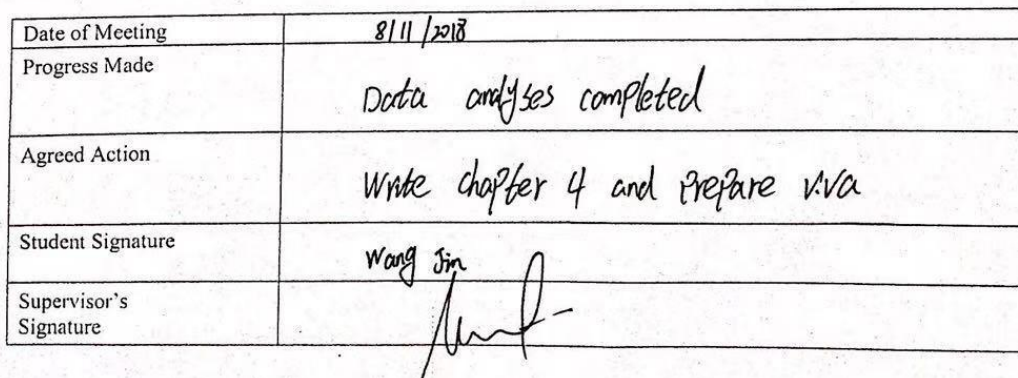 Date of Meeting 8/11/2018
Progress Made
Data analyses completed
Agreed Action
Write chapter 4 and prepare viva
Student Signature
Wang Jin
Supervisor's
Signature